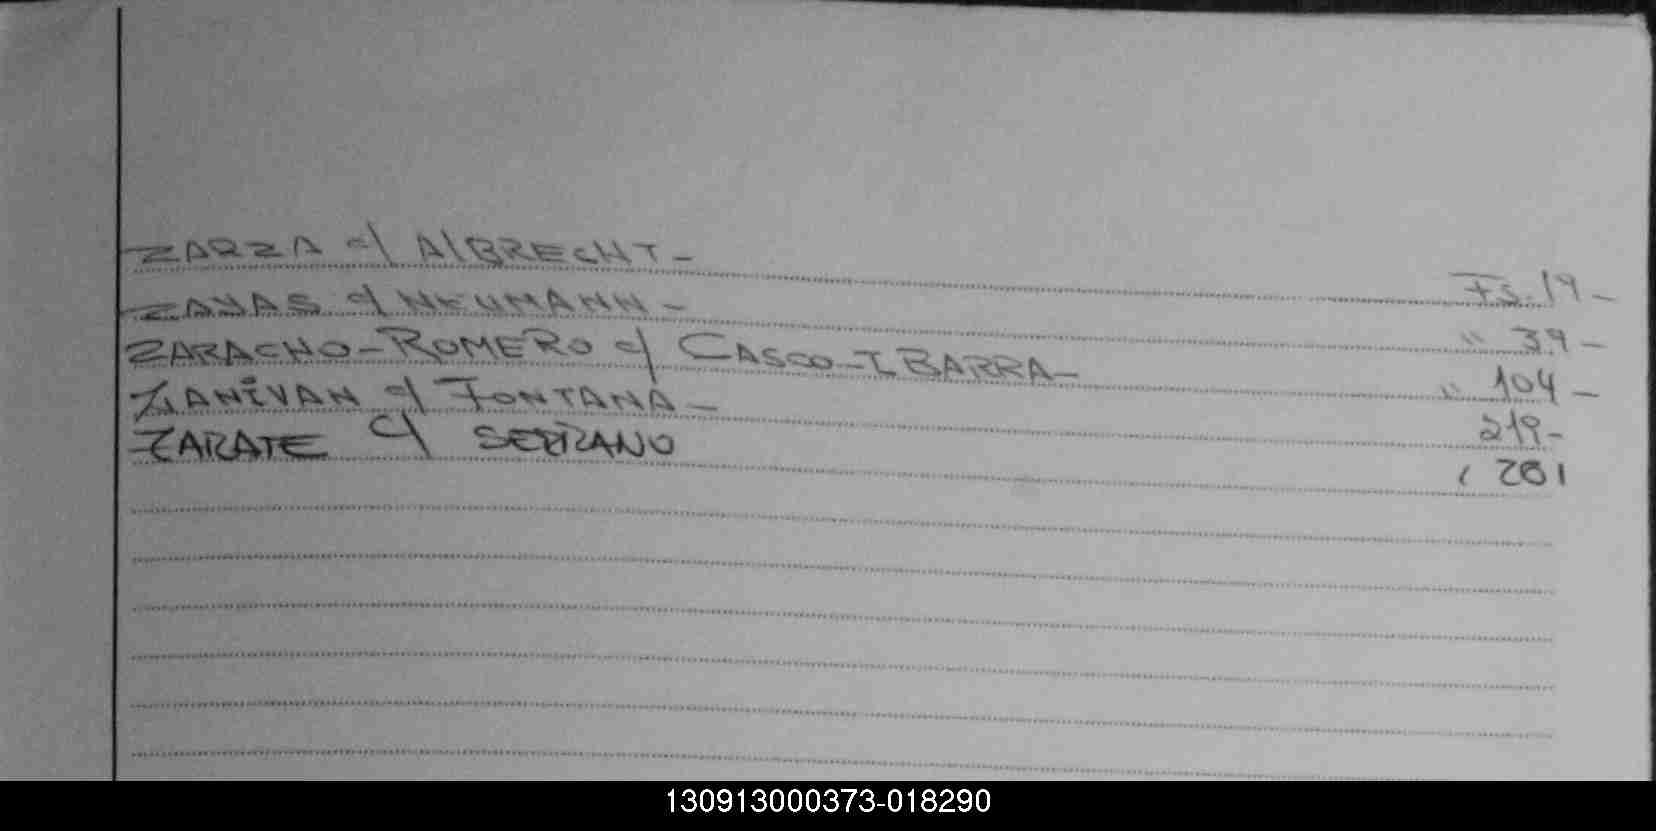 ZARZA c/ AlBRECHT - Fs. 19 -
ZAYAS c/ NEUMANN - " 39 -
ZARACHO - ROMERO c/ CASCO - IBARRA - " 104 -
ZANiVAN c/ FONTANA - 219 -
ZARATE C/ SERRANO 281
130913000373-018290